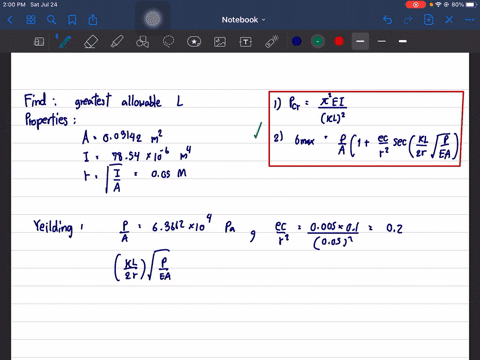 2:00 PM Sat Jul 24
Notebook
Find : greatest allowable L
Properties :
A = 0.03142 m²
I = 78.54 × 10⁻⁶ m⁴
r = √(I/A) = 0.05 M
1) Pcr = π²EI/(KL)²
2) σmax = P/A (1 + ec/r² sec(KL/2r √(P/EA))
Yeilding : P/A = 6.3662 × 10⁴ Pa , ec/r² = 0.005 × 0.1/(0.05)² = 0.2
(KL/2r) √(P/EA)